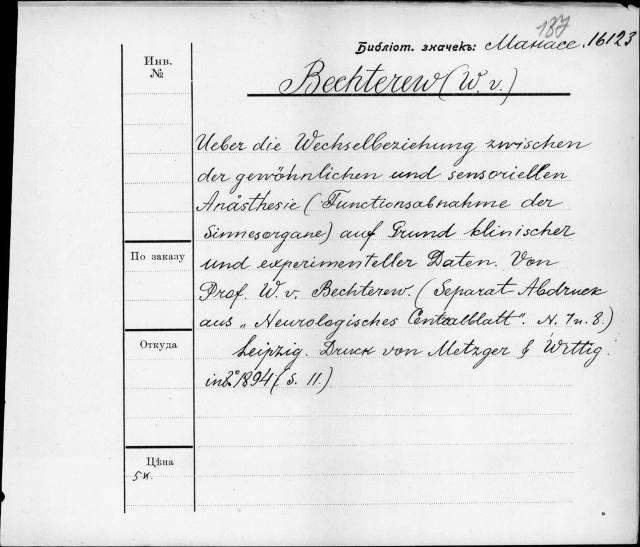 137
Библіот. значекъ: Манасе. 16123
Инв.
№
Bechterew (W. v.)
Ueber die Wechselbeziehung zwischen
der gewöhnlichen und sensoriellen
Anästhesie (Functionsabnahme der
Sinnesorgane) auf Grund klinischer
По заказу
und experimenteller Daten. Von
Prof. W. v. Bechterew. (Separat Abdruck
aus „Neurologisches Centralblatt". N. 7 u. 8.)
Откуда
Leipzig. Druck von Metzger & Wittig.
in 8° 1894 (S. 11.)
Цѣна
5 к.